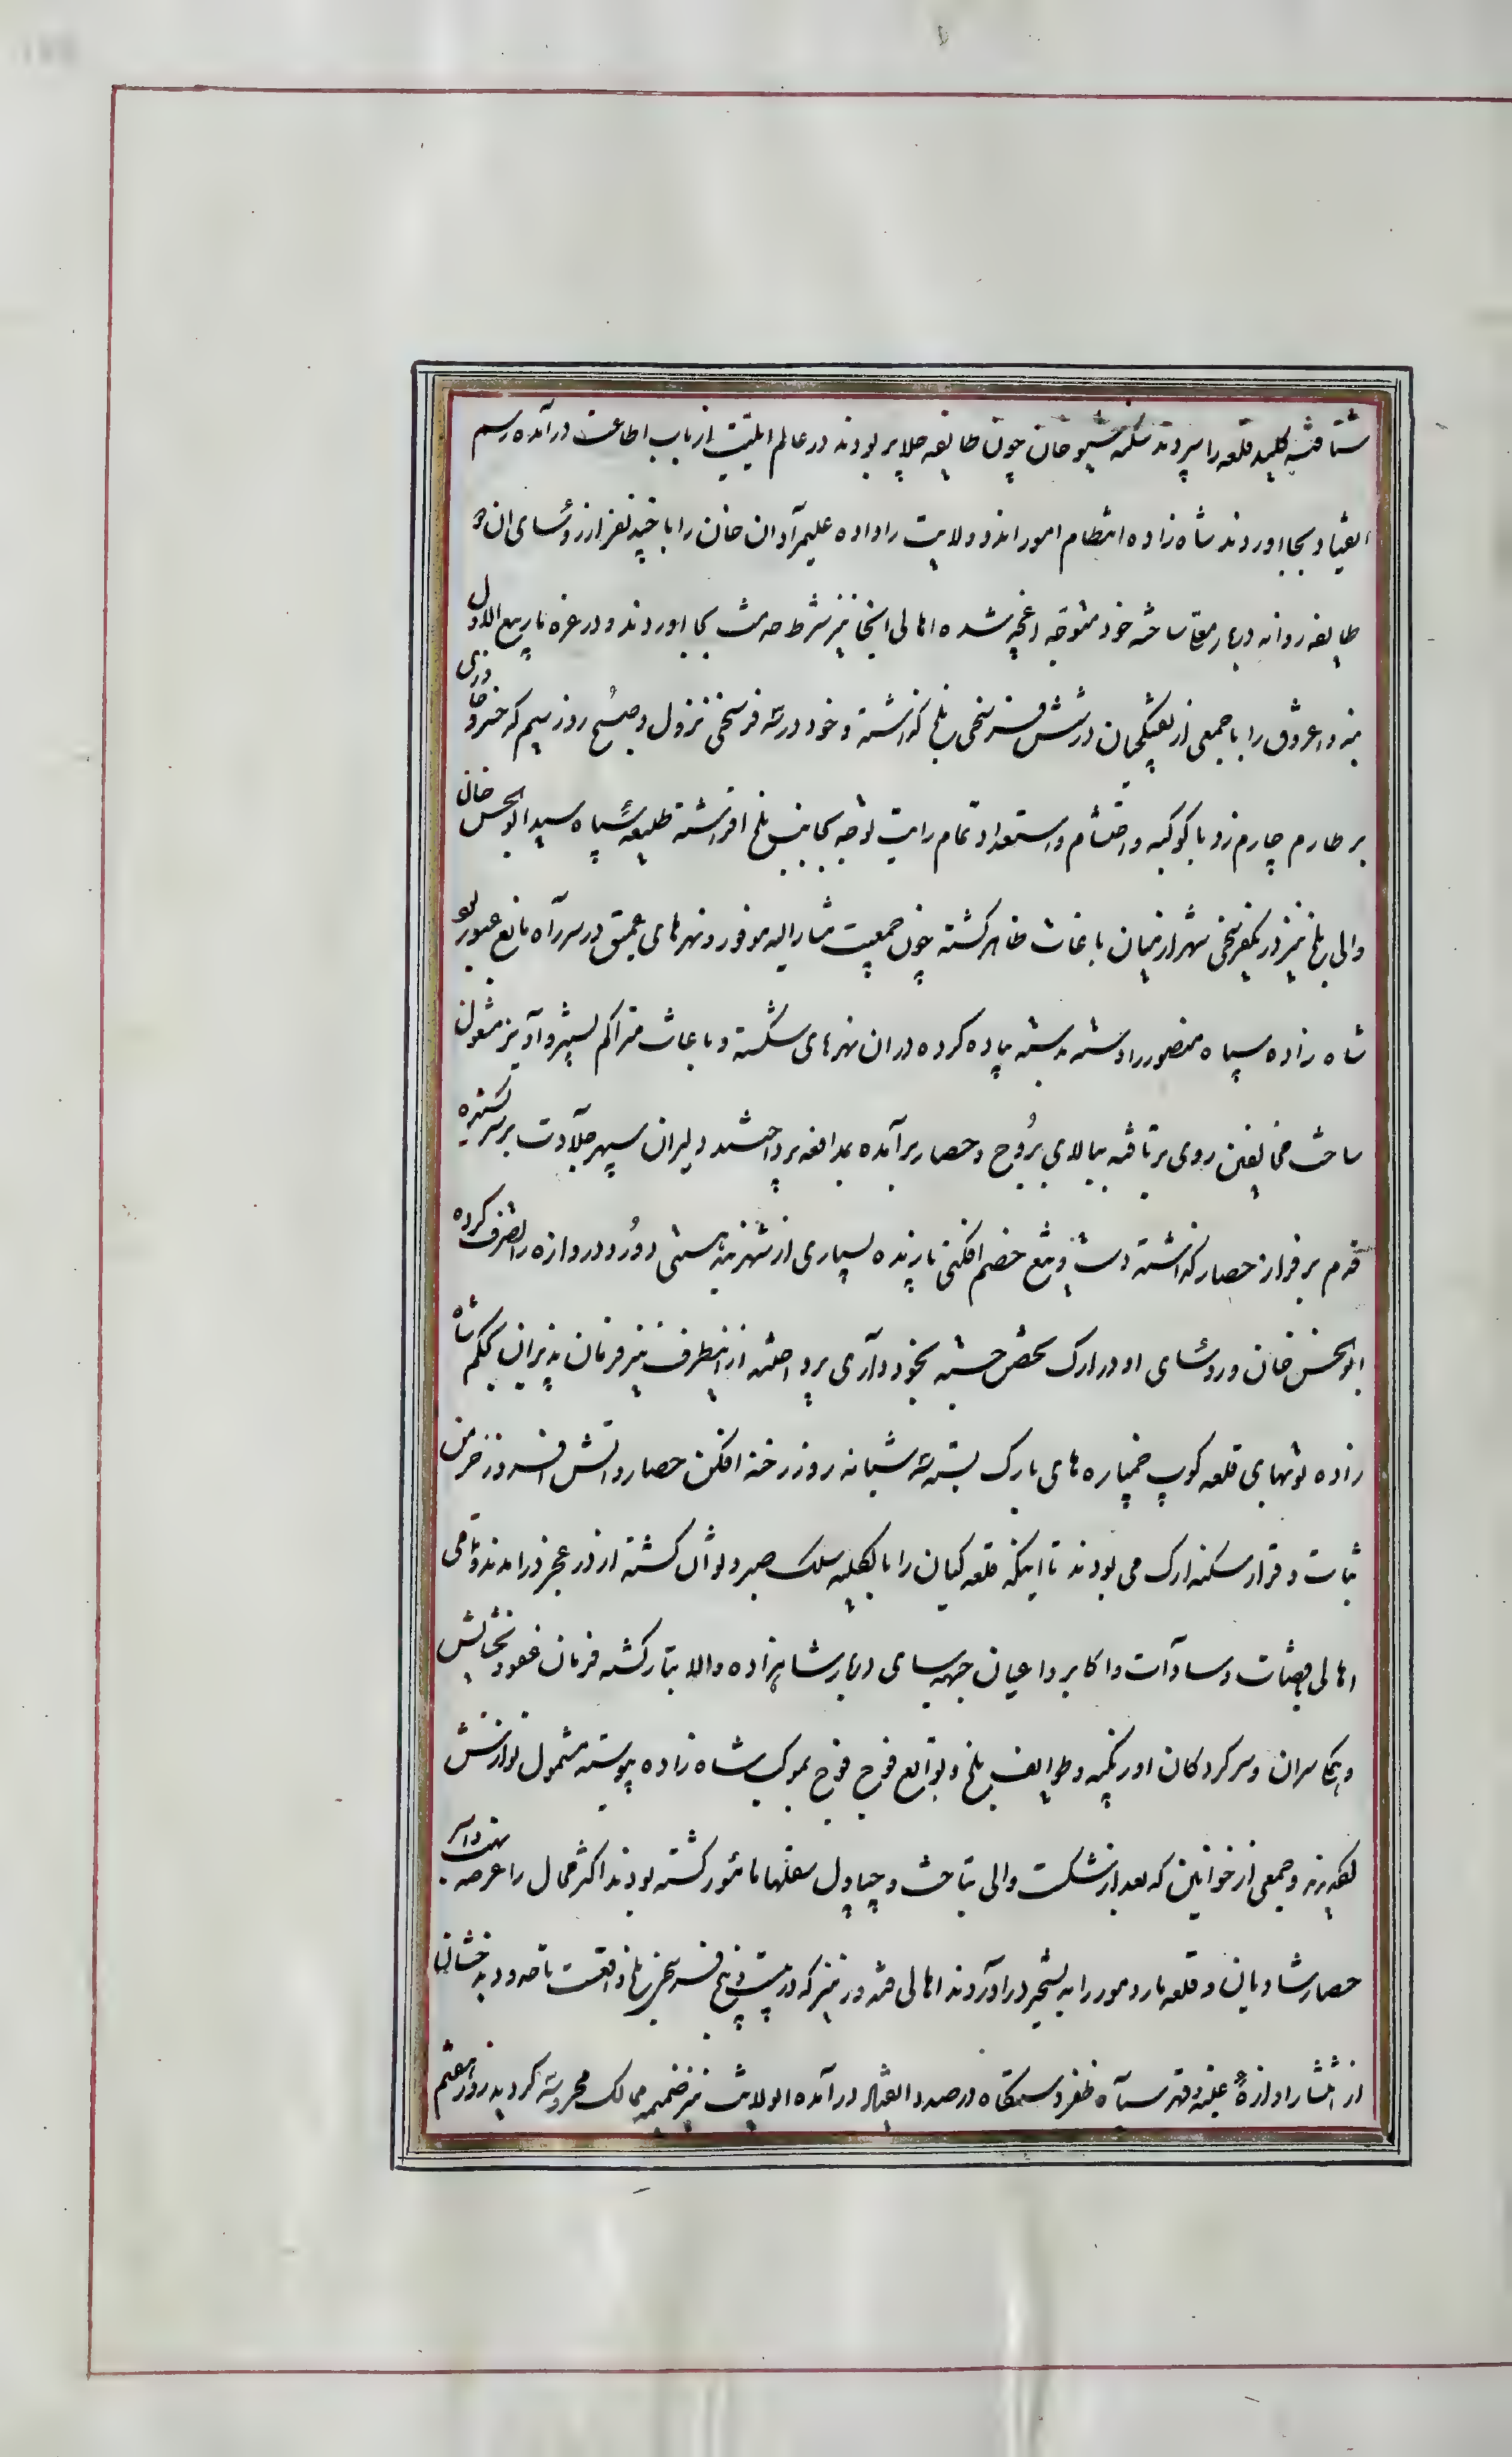 شتافته کلید قلعه را سپردند سکنه خان چون طایفه جلایر بودند در عالم ایلیت از باب اطاعت درآمده رسم
انقیاد بجا اوردند شاه زاده انتظام امور اندو ولایت را داده علیمردان خان را با چند نفر از رؤسای ان
طایفه روانه دربار معلا ساخته خود متوجه اغچه شده اهالی انجا نیز شرط خدمت بجا اوردند و در غره ماه ربیع الاول
بنه و اغروق را با جمعی از تفنگچیان در شش فرسخی بلخ گذاشته و خود در سه فرسخی نزول و صبح روز سیم که خسرو خاوری
بر طارم چارم زد با کوکبه و احتشام و استعداد تمام رایت توجه بجانب بلخ افراشته طلیعه سپاه سید ابوالحسن خان
والی بلخ نیز در یکفرسخی شهر از میان باغات ظاهر گشته چون جمعیت مشارالیه موفور و نهرهای عمیق در سر راه مانع عبور بود
شاه زاده سپاه منصور را دسته دسته پیاده کرده در ان نهرهای شکسته و باغات متراکم بستیز و آویز مشغول
ساخت مخالفین روی برتافته ببالای بروج و حصار برآمده بمدافعه پرداختند دلیران سپهر جلادت بر سر کشیده
قدم بر فراز حصار گذاشته دست و تیغ خصم افکنی یازیده بسیاری از شهربند هستی دور و دروازه را تصرف کرده
ابوالحسن خان و رؤسای او در ارک تحصن جسته بخودداری پرداختند از اینطرف نیز فرمان پذیران بحکم شاه
زاده توپهای قلعه کوب خمپاره های بارک بسته سه شبانه روز رخنه افکن حصار و اتش افروز خرمن
ثبات و قرار سکنه ارک می بودند تا اینکه قلعه کیان را بالکلیه سلک صبر و توان گسسته از در عجز درامدند و تمامی
اهالی و قضات و سادات و اکابر و اعیان جبهه سای دربار شاهزاده والا تبار گشته فرمان عفو و بخشایش
و همگی سران و سرکردگان اوزبکیه و طوایف بلخ و توابع فوج فوج بموکب شاه زاده پیوسته مشمول نوازش
گردیدند و جمعی از خوانین که بعد از شکست والی بتاخت و چپاول مامور گشته بودند اکثر محال را عرصه نهب و اسر
حصار شادیان و قلعه را به تسخیر دراوردند اهالی قندوز نیز که در بیست و پنج فرسخی بلخ واقعست تا حدود بدخشان
از انتشار اوازه غلبه و قهر سپاه ظفر دستگاه درصدد انقیاد درآمده انولایت نیز ضمیمه ممالک محروسه گردید روز هفتم